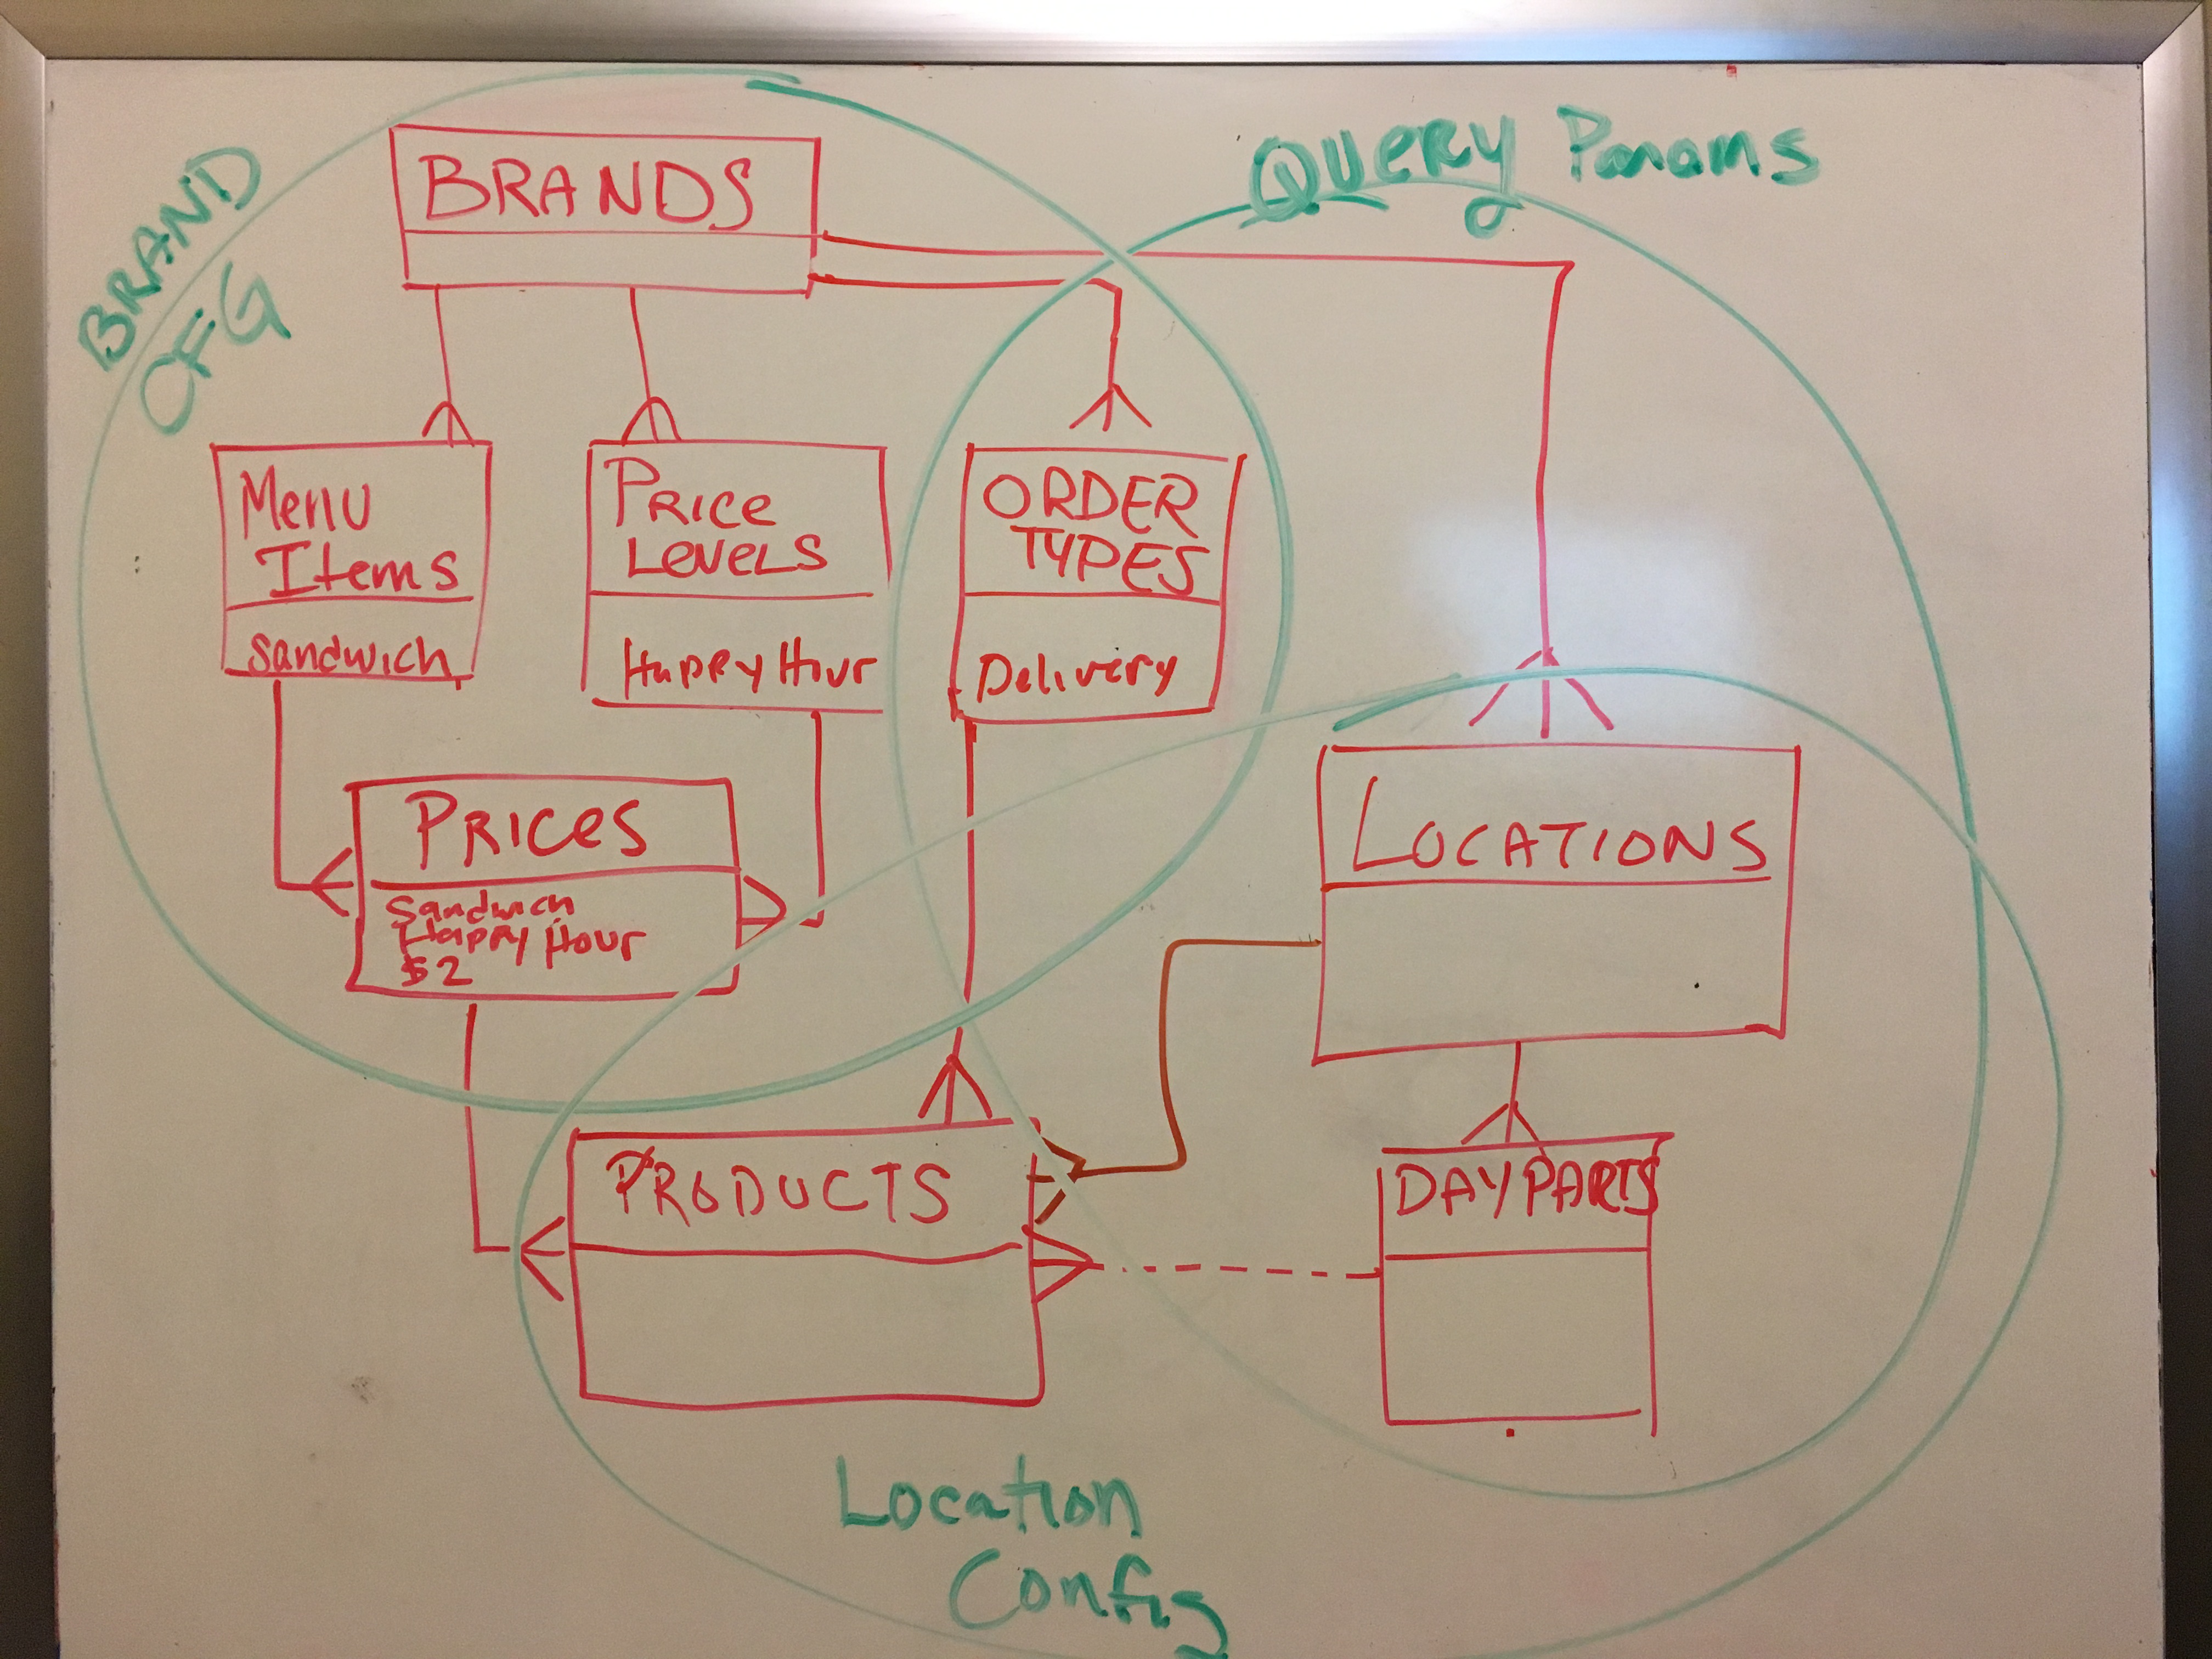 BRAND
CFG
QUERY Params
BRANDS
Menu
Items
Sandwich
PRICE
LEVELS
Happy Hour
ORDER
TYPES
Delivery
PRICES
Sandwich
Happy Hour
$2
LOCATIONS
PRODUCTS
DAYPARTS
Location
Config